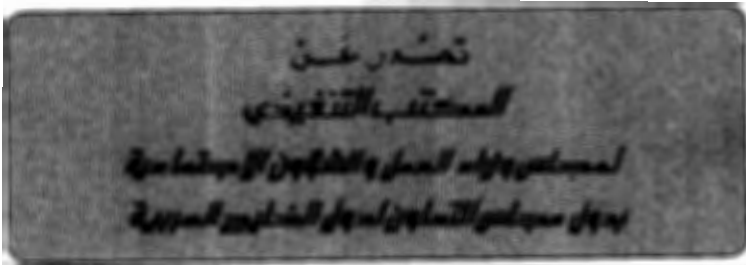 تصدر عن
المكتب التنفيذي
لمجلس وزراء العمل والشؤون الاجتماعية
بدول مجلس التعاون لدول الخليج العربية